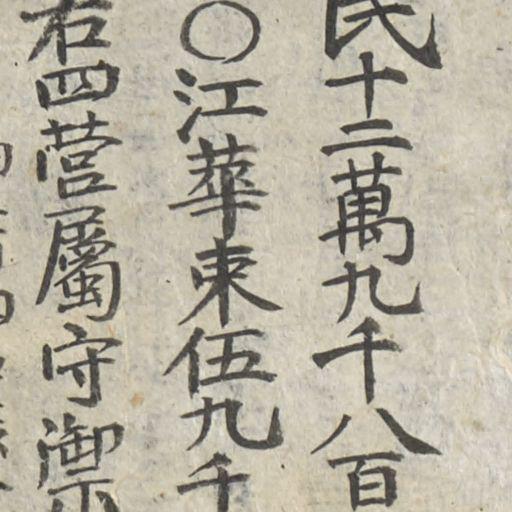 民十二萬九千八百
〇江華束伍九千
右四營屬守禦